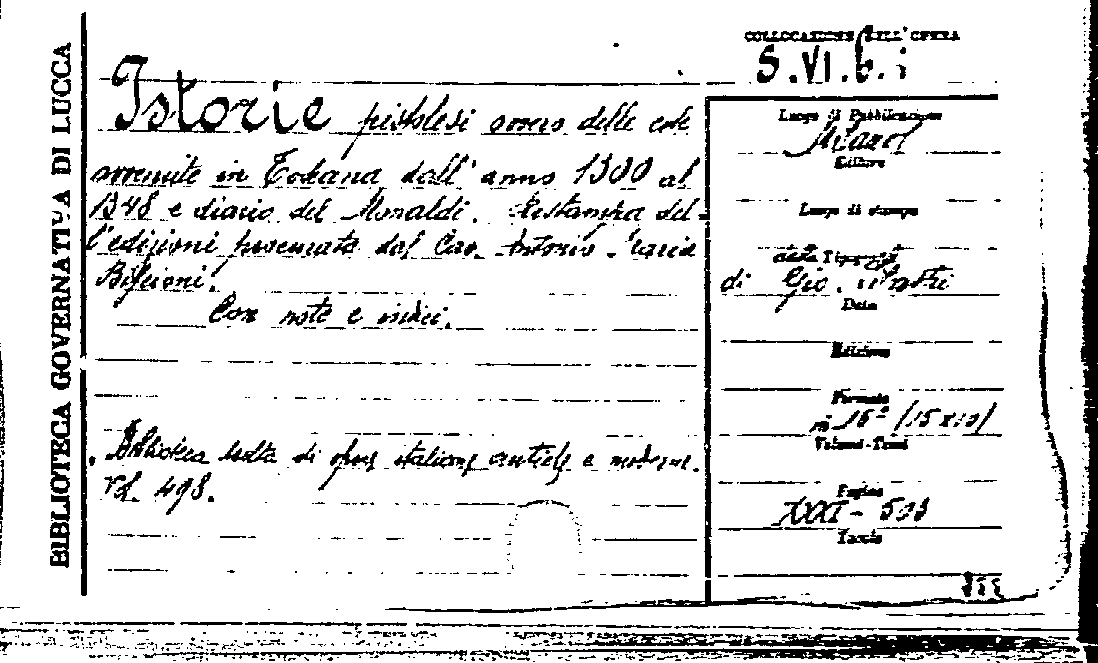 BIBLIOTECA GOVERNATIVA DI LUCCA
COLLOCAZIONE DELL'OPERA
S.VI.b.i
Istorie pistolesi ovvero delle cose
avvenute in Toscana dall'anno 1300 al
1348 e diario del Monaldi. Ristampa del-
l'edizioni procurata dal Cav. Antonio Maria
Biscioni.
Con note e indici.
. Biblioteca scelta di opere italiane antiche e moderne.
Vol. 498.
Luogo di Pubblicazione
Milano
Editore
Luogo di stampa
dalla Tipografia
di Gio. Silvestri
Data
Edizione
Formato
in 16º (15x10)
Volumi-Tomi
Pagine
XXI - 503
Tavole